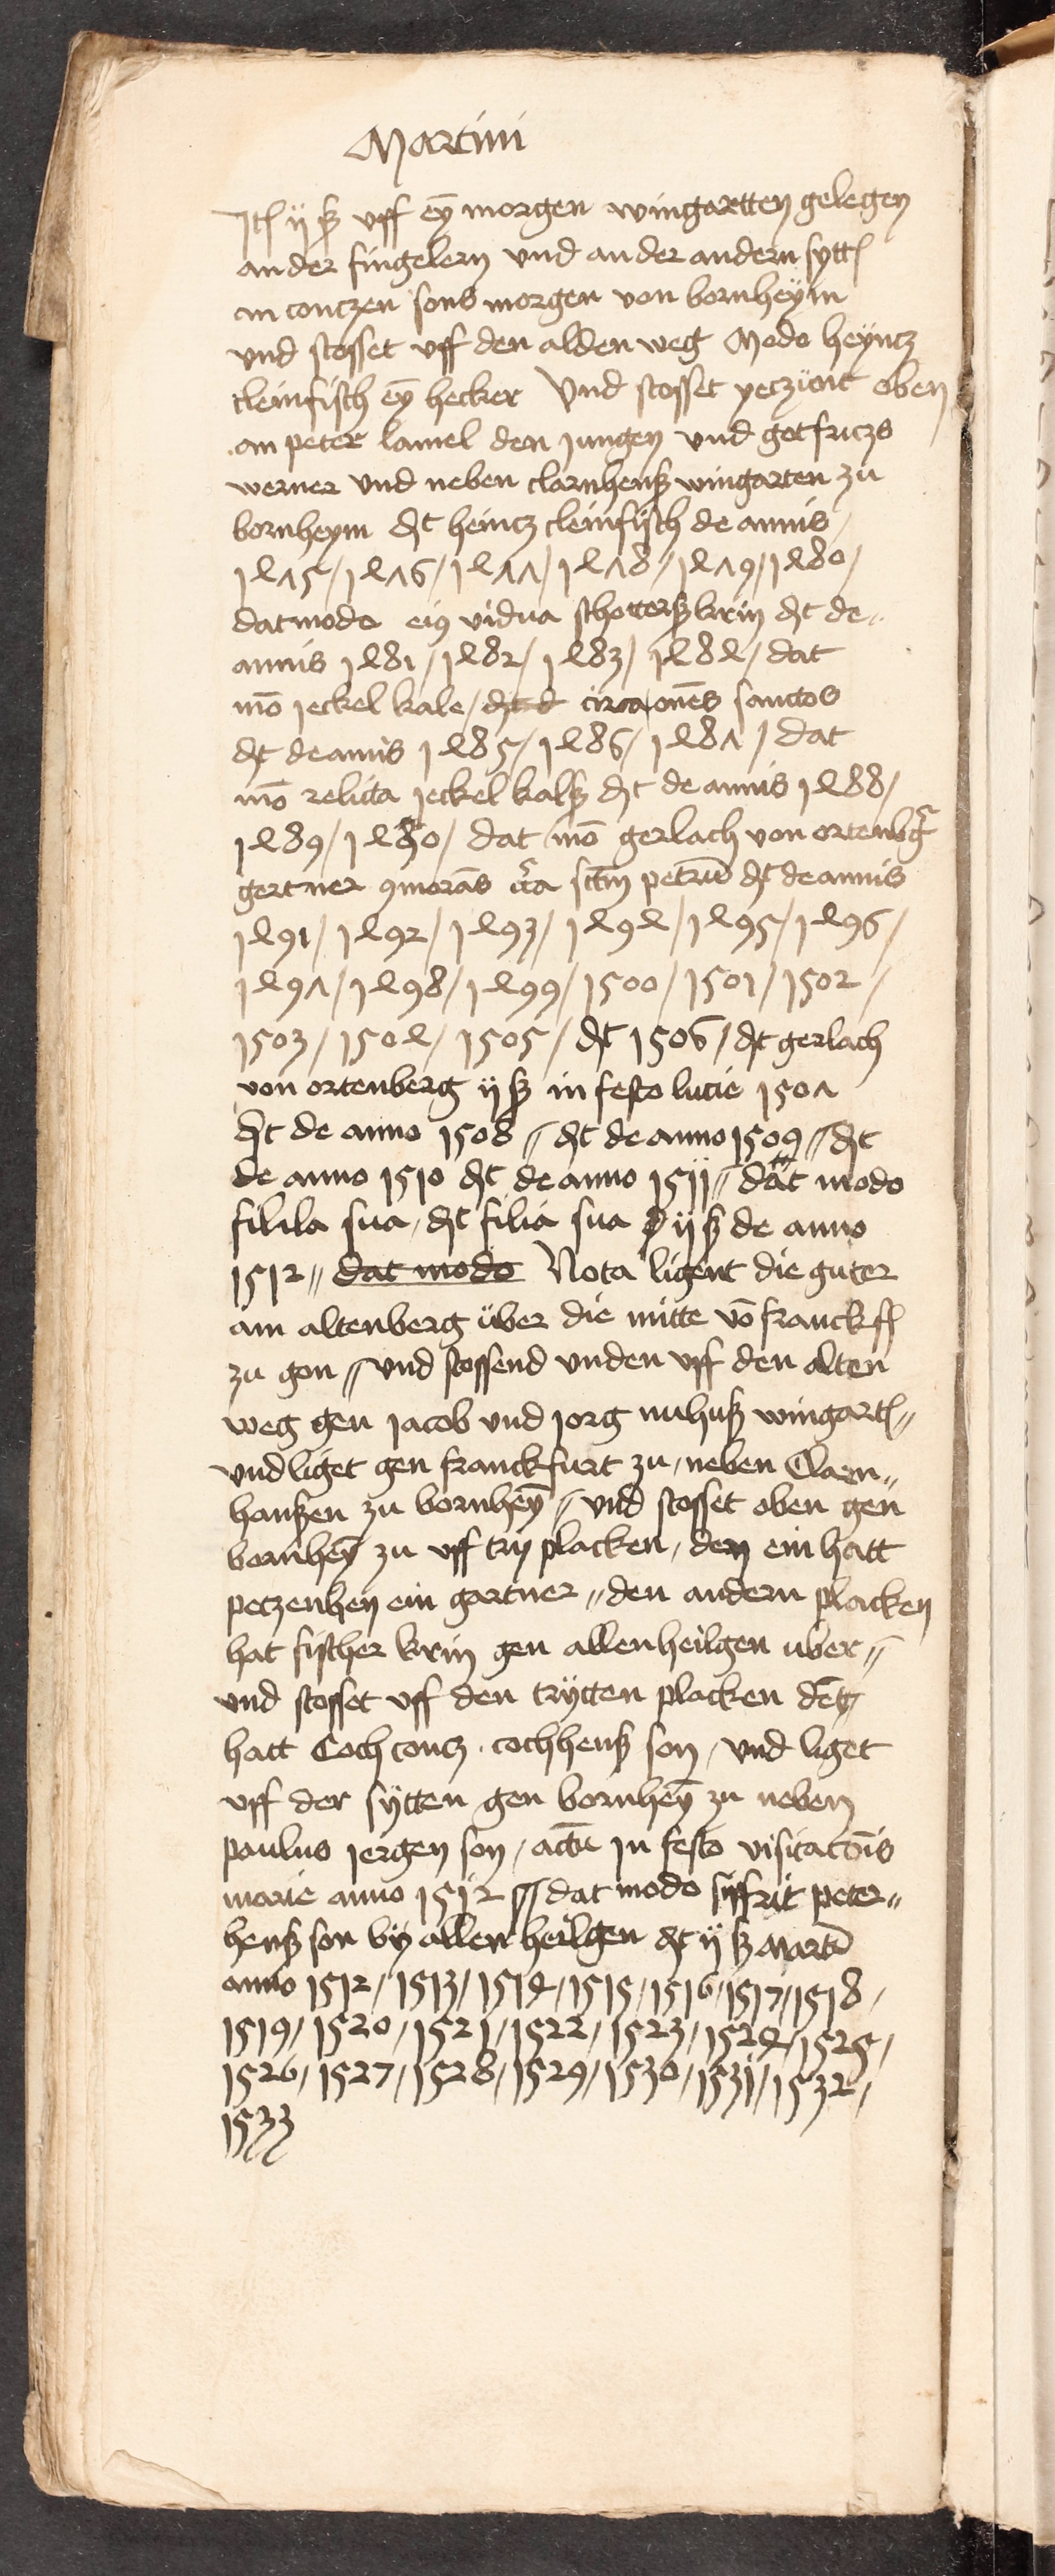 Martini
Itꝭ ij ß vff eȳ morgen wingartten gelegen
an der singelern vnd an der andern sytt
an contzen sons morgen von bornheÿm
vnd stosset vff den alden weg Modo heyntz
cleinfisch eȳ hecker Vnd stosset yeczūnt oben
an peter lamel den jungen vnd getfriczs
werner vnd neben clarnhenß wingarten zu
bornheym dt heintz cleinfisch de annis
1475/ 1476/ 1477/ 1478/ 1479/ 1480/
dat modo eiꝰ vidua schotterß krin dt de
annis 1481/ 1482/ 1483/ 1484/ dat
mō jeckel kale/ circa om̄es sanctos
dt de annis 1485/ 1486/ 1487/ dat
mō relicta jeckel kalß dt de annis 1488/
1489/ 1490/ dat mō gerlach von ortenbg
gertner ꝯmorās cͥca sctm̄ petrū dt de annis
1491/ 1492/ 1493/ 1494/ 1495/ 1496/
1497/ 1498/ 1499/ 1500/ 1501/ 1502/
1503/ 1504/ 1505/ dt 1506/ dt gerlach
von ortenberg ij ß in festo lucie 1507
dt de anno 1508 // dt de anno 1509 // dt
de anno 1510 dt de anno 1511 // dat modo
filila sua, dt filia sua ij ß de anno
1512 // dat modo Nota ligent die guter
am altenberg über die mitte vō franckff
zu gon // vnd stossend vnden vff den alten
weg gen jacob vnd jorg nuhuß wingart //
vnd liget gen franckfurt zu, neben Claen //
hanßen zu bornheȳ // vnd stosset oben gen
bornheȳ zu vff try placken, den ein hatt
petzenhen ein gartner // den andern placken
hat fischer krin gen allenheilgen uber //
vnd stosset vff den trÿtten placken den
hatt Coch contz . cochhenß son, vnd liget
vff der sÿtten gen bornheȳ zu neben
paulus jergen son, actū in festo visitacōis
marie anno 1512 /// dat modo siffrit peter //
henß son bÿ allen heilgen dt ij ß Martī
anno 1512/ 1513/ 1514/ 1515/ 1516/ 1517/ 1518/
1519/ 1520/ 1521/ 1522/ 1523/ 1524/ 1525/
1526/ 1527/ 1528/ 1529/ 1530/ 1531/ 1532/
1533